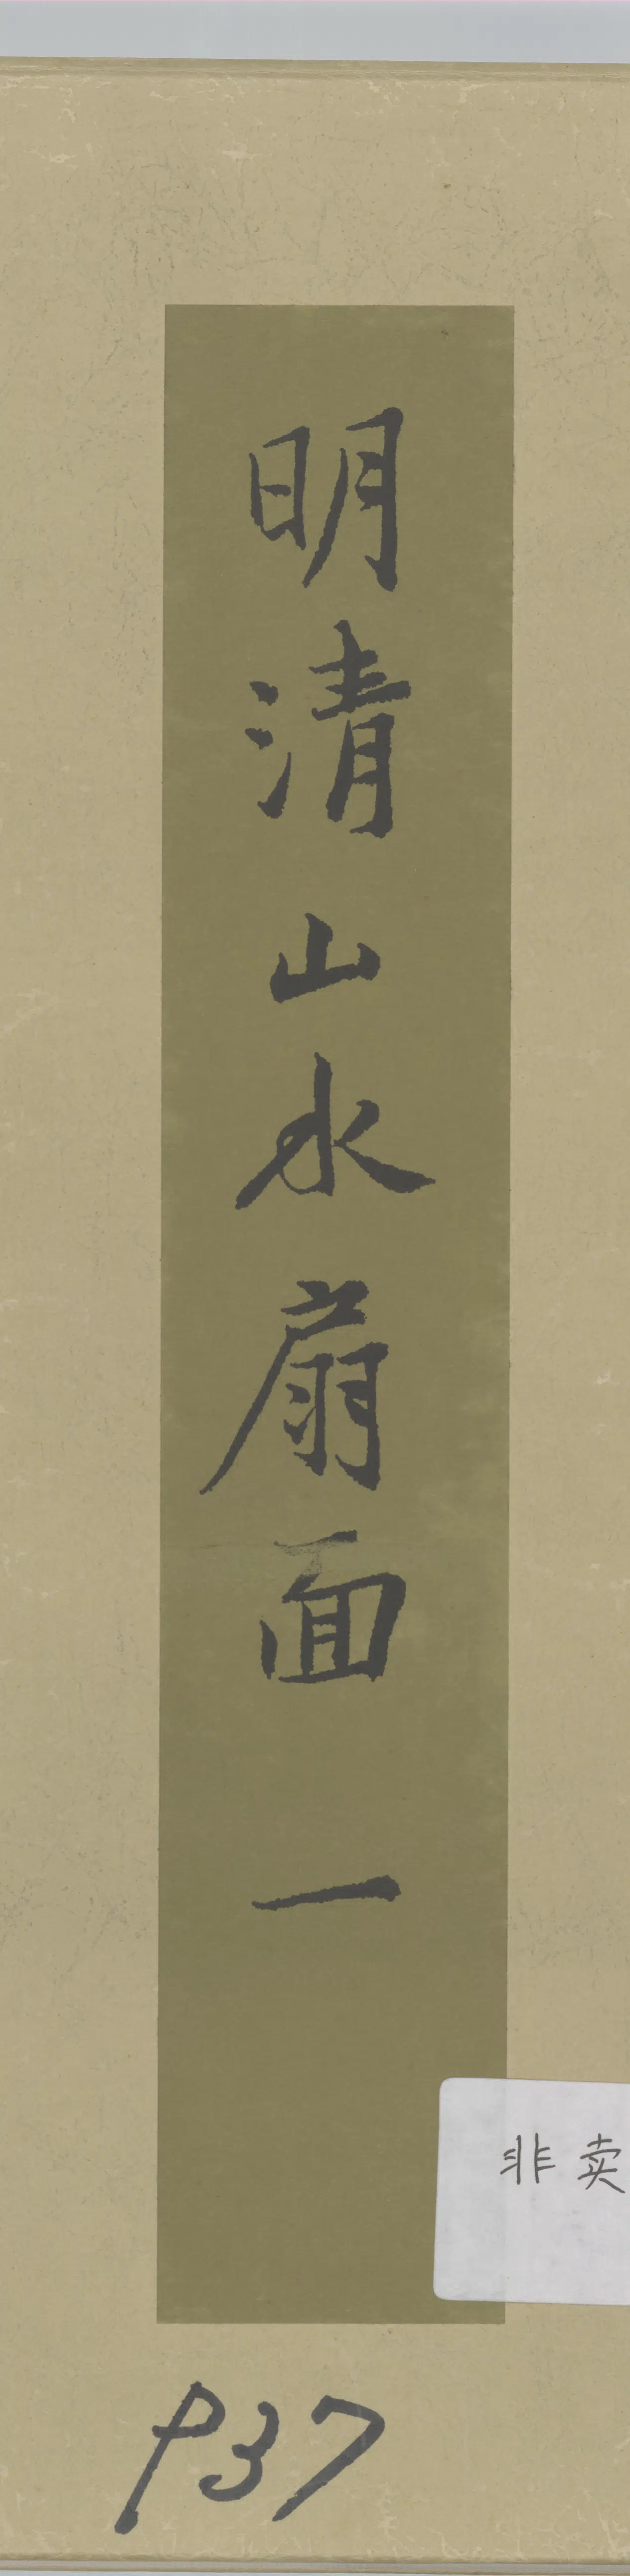 明清山水扇面一
非卖
P37